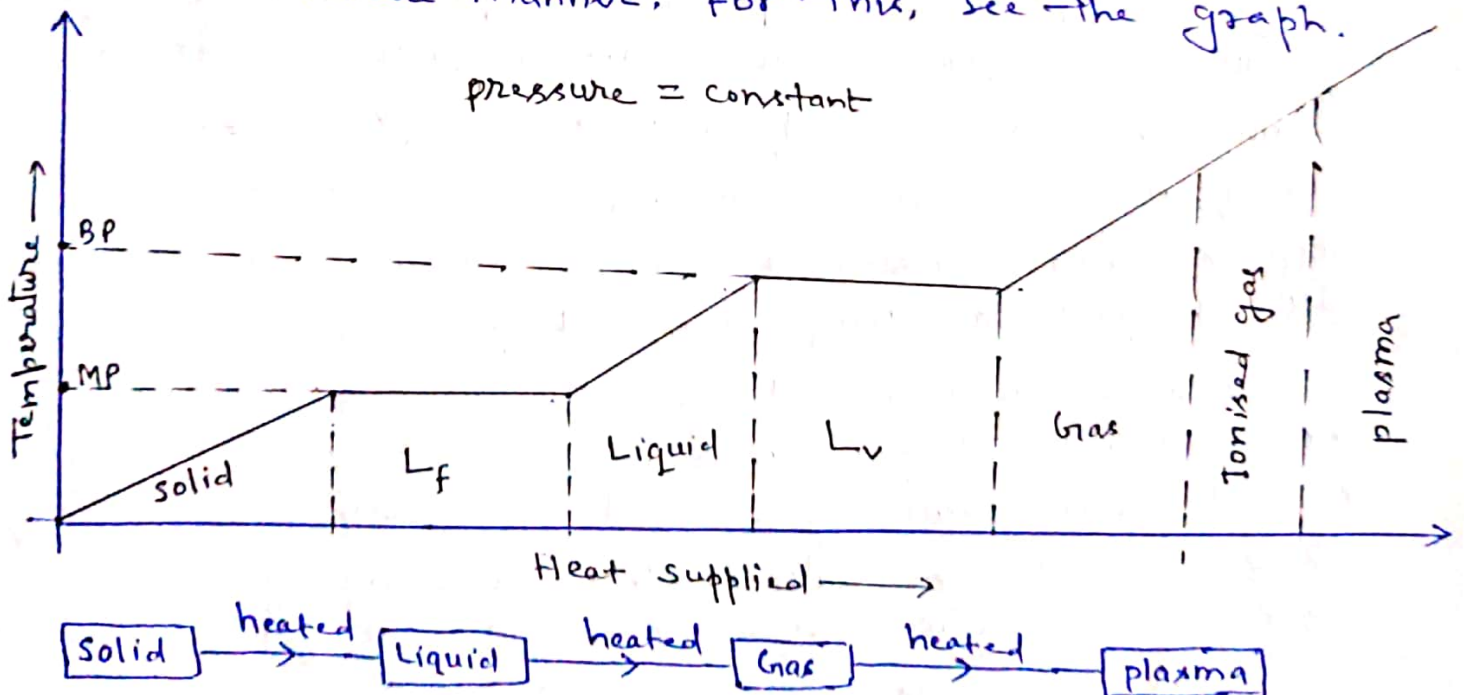 For this, see the graph.
pressure = constant
Temperature
BP
MP
solid
Lf
Liquid
Lv
Gas
Ionised gas
plasma
Heat supplied
Solid heated Liquid heated Gas heated plasma